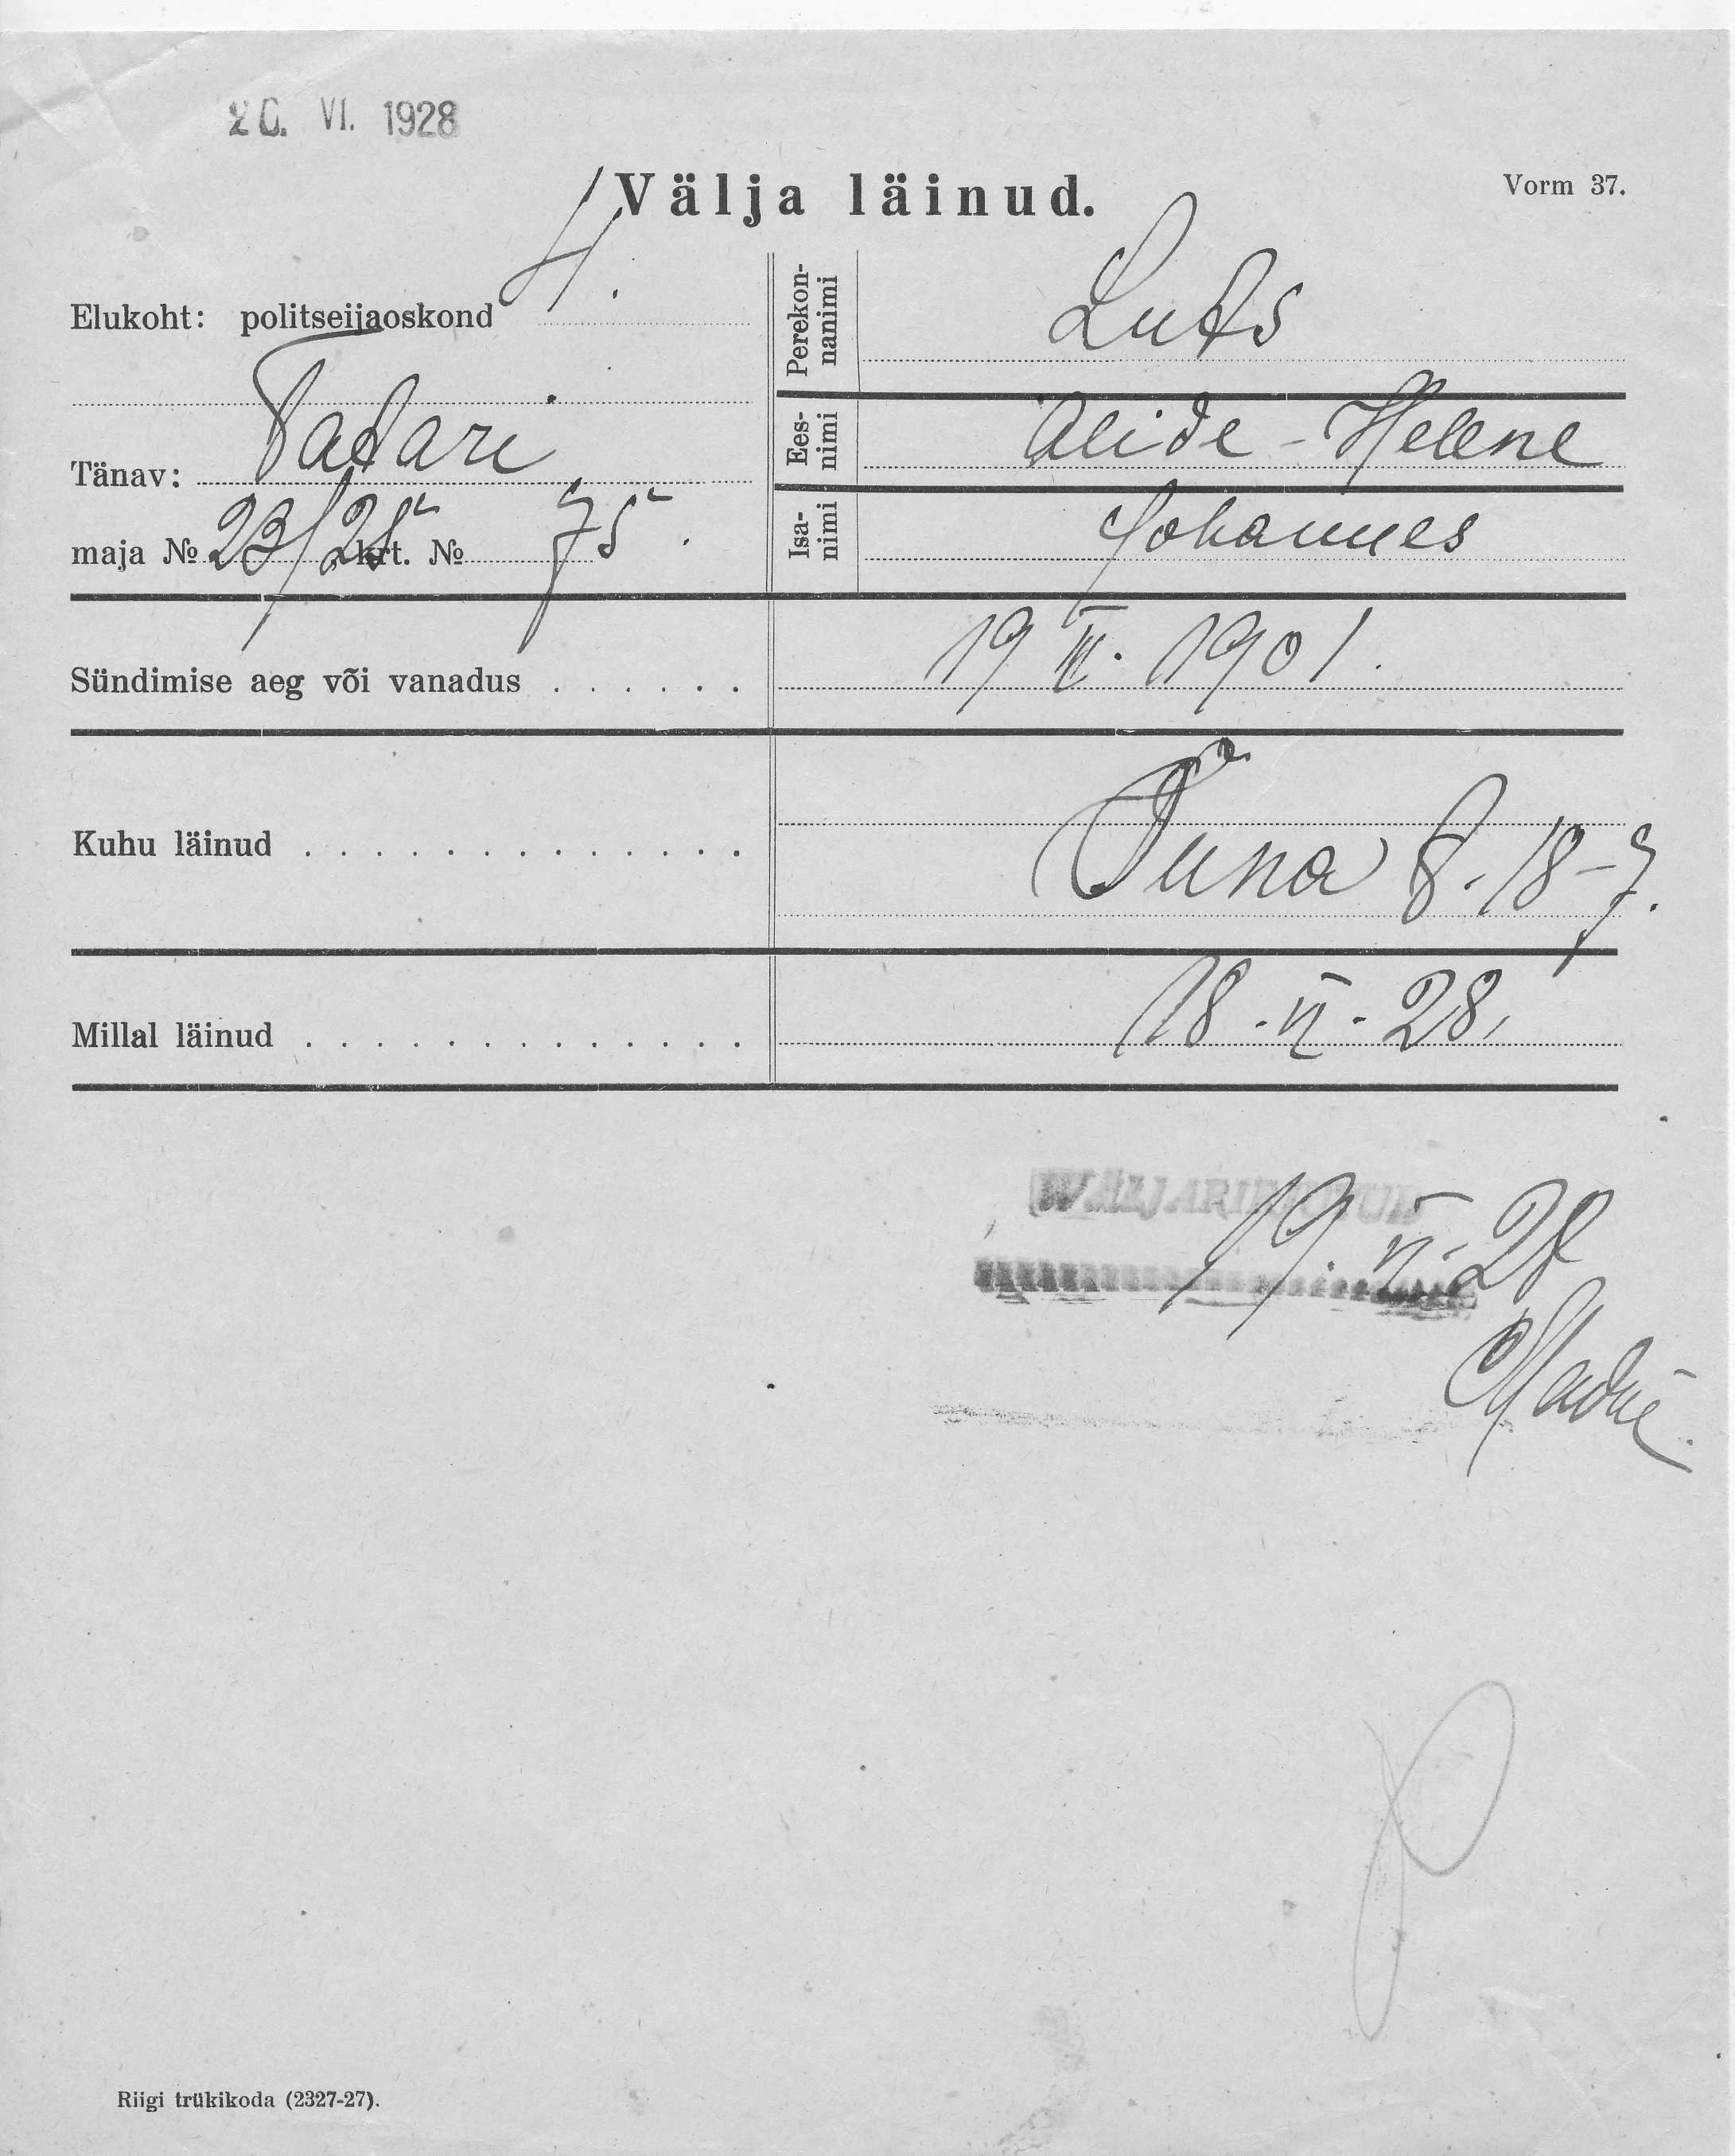 20. VI. 1928
Välja läinud.
Vorm 37.
Elukoht: politseijaoskond 4.
Tänav: Tatari
maja № 23/25 krt. № 75.
Perekon-
nanimi
Luts
Ees-
nimi
Alide-Helene
Isa-
nimi
Johannes
Sündimise aeg või vanadus . . . . . . 19 III. 1901.
Kuhu läinud . . . . . . . . . . . . . . 8-18-7.
Millal läinud . . . . . . . . . . . . . . 18.VI.28.
19.VI.28
Riigi trükikoda (2327-27).